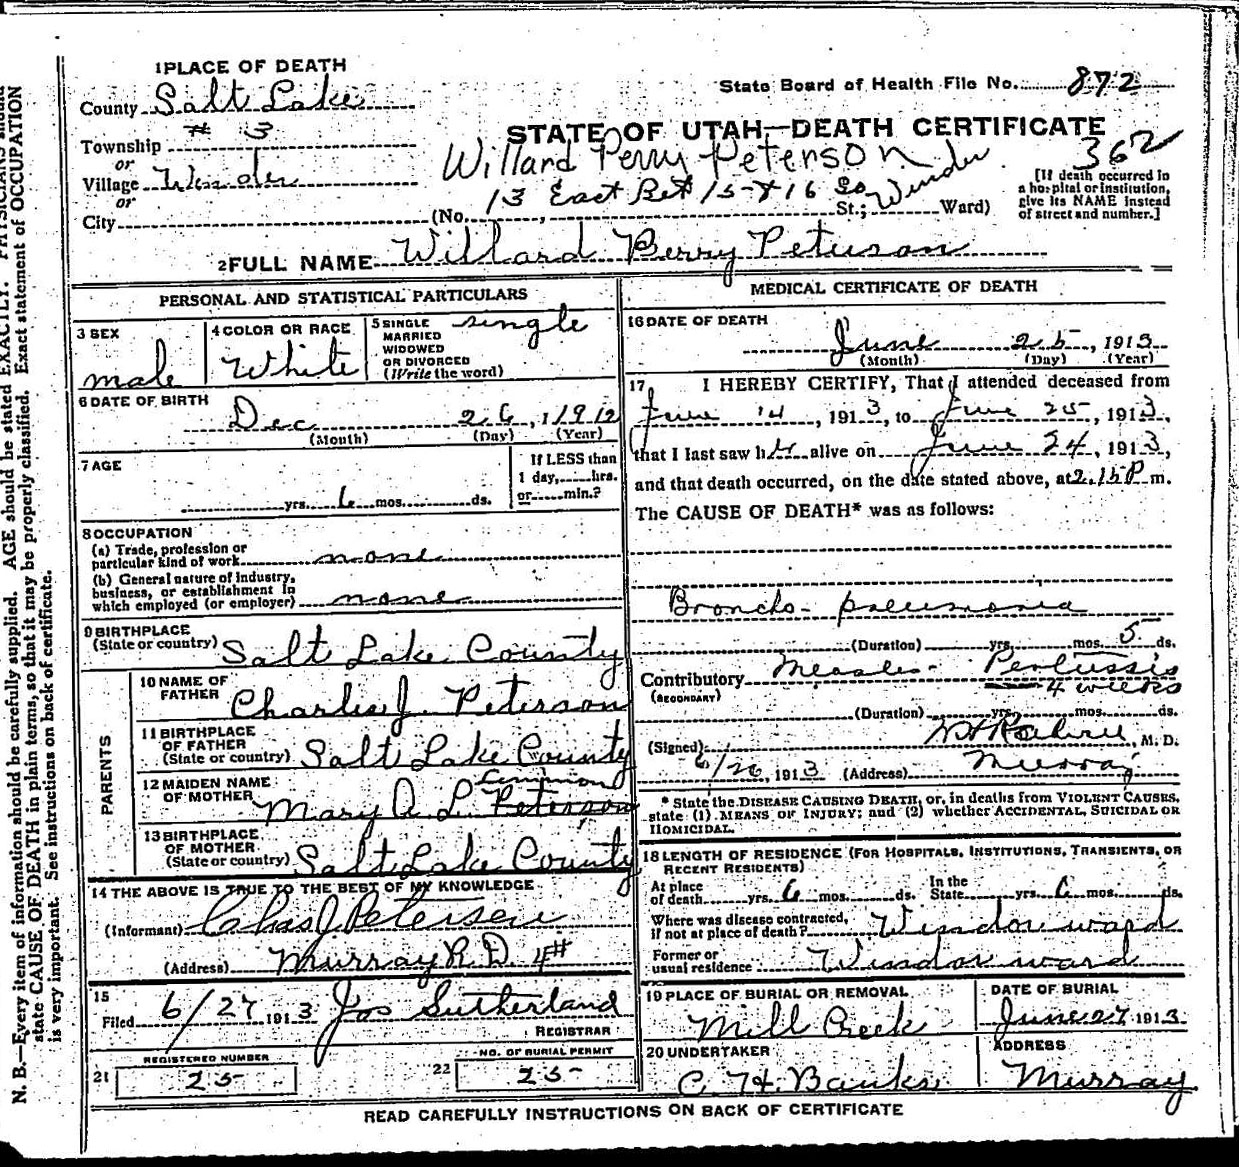 1 PLACE OF DEATH
County Salt Lake
State Board of Health File No. 872
# 3
Township
or
Village Winder
or
City
STATE OF UTAH—DEATH CERTIFICATE
362
Willard Perry Peterson
13 East Bet 15 & 16 So Winder
(No. , St.; Ward)
[If death occurred in a hospital or institution, give its NAME instead of street and number.]
2 FULL NAME Willard Perry Peterson
PERSONAL AND STATISTICAL PARTICULARS
3 SEX
male
4 COLOR OR RACE
White
5 SINGLE MARRIED WIDOWED OR DIVORCED (Write the word)
single
6 DATE OF BIRTH
Dec 26, 1912
(Month) (Day) (Year)
7 AGE
yrs. 6 mos. ds.
If LESS than 1 day, hrs. or min.?
8 OCCUPATION
(a) Trade, profession or particular kind of work none
(b) General nature of industry, business, or establishment in which employed (or employer) none
9 BIRTHPLACE
(State or country) Salt Lake County
PARENTS
10 NAME OF FATHER
Charles J. Peterson
11 BIRTHPLACE OF FATHER
(State or country) Salt Lake County
12 MAIDEN NAME OF MOTHER
Mary A. L. Peterson
13 BIRTHPLACE OF MOTHER
(State or country) Salt Lake County
14 THE ABOVE IS TRUE TO THE BEST OF MY KNOWLEDGE
(Informant) Chas J Petersen
(Address) Murray R. D. 4#
15
Filed 6/27 1913 Jos Sutherland
REGISTRAR
REGISTERED NUMBER
21 25
NO. OF BURIAL PERMIT
22 25
MEDICAL CERTIFICATE OF DEATH
16 DATE OF DEATH
June 25, 1913
(Month) (Day) (Year)
17 I HEREBY CERTIFY, That I attended deceased from
June 14, 1913, to June 25, 1913,
that I last saw h alive on June 24, 1913,
and that death occurred, on the date stated above, at 2.15 P m.
The CAUSE OF DEATH* was as follows:
Broncho-pneumonia
(Duration) yrs. mos. 5 ds.
Contributory Measles - Pertussis
(SECONDARY) 4 weeks
(Duration) yrs. mos. ds.
(Signed) , M. D.
6/26, 1913 (Address) Murray
* State the DISEASE CAUSING DEATH, or, in deaths from VIOLENT CAUSES, state (1) MEANS OF INJURY; and (2) whether ACCIDENTAL, SUICIDAL OR HOMICIDAL.
18 LENGTH OF RESIDENCE (FOR HOSPITALS, INSTITUTIONS, TRANSIENTS, OR RECENT RESIDENTS)
At place of death yrs. 6 mos. ds. In the State yrs. 6 mos. ds.
Where was disease contracted, if not at place of death? Windor ward
Former or usual residence Windor ward
19 PLACE OF BURIAL OR REMOVAL
Mill Creek
DATE OF BURIAL
June 27 1913
20 UNDERTAKER
C. H. Banks
ADDRESS
Murray
READ CAREFULLY INSTRUCTIONS ON BACK OF CERTIFICATE
N. B.—Every item of information should be carefully supplied. AGE should be stated EXACTLY. PHYSICIANS should
state CAUSE OF DEATH in plain terms, so that it may be properly classified. Exact statement of OCCUPATION
is very important. See instructions on back of certificate.